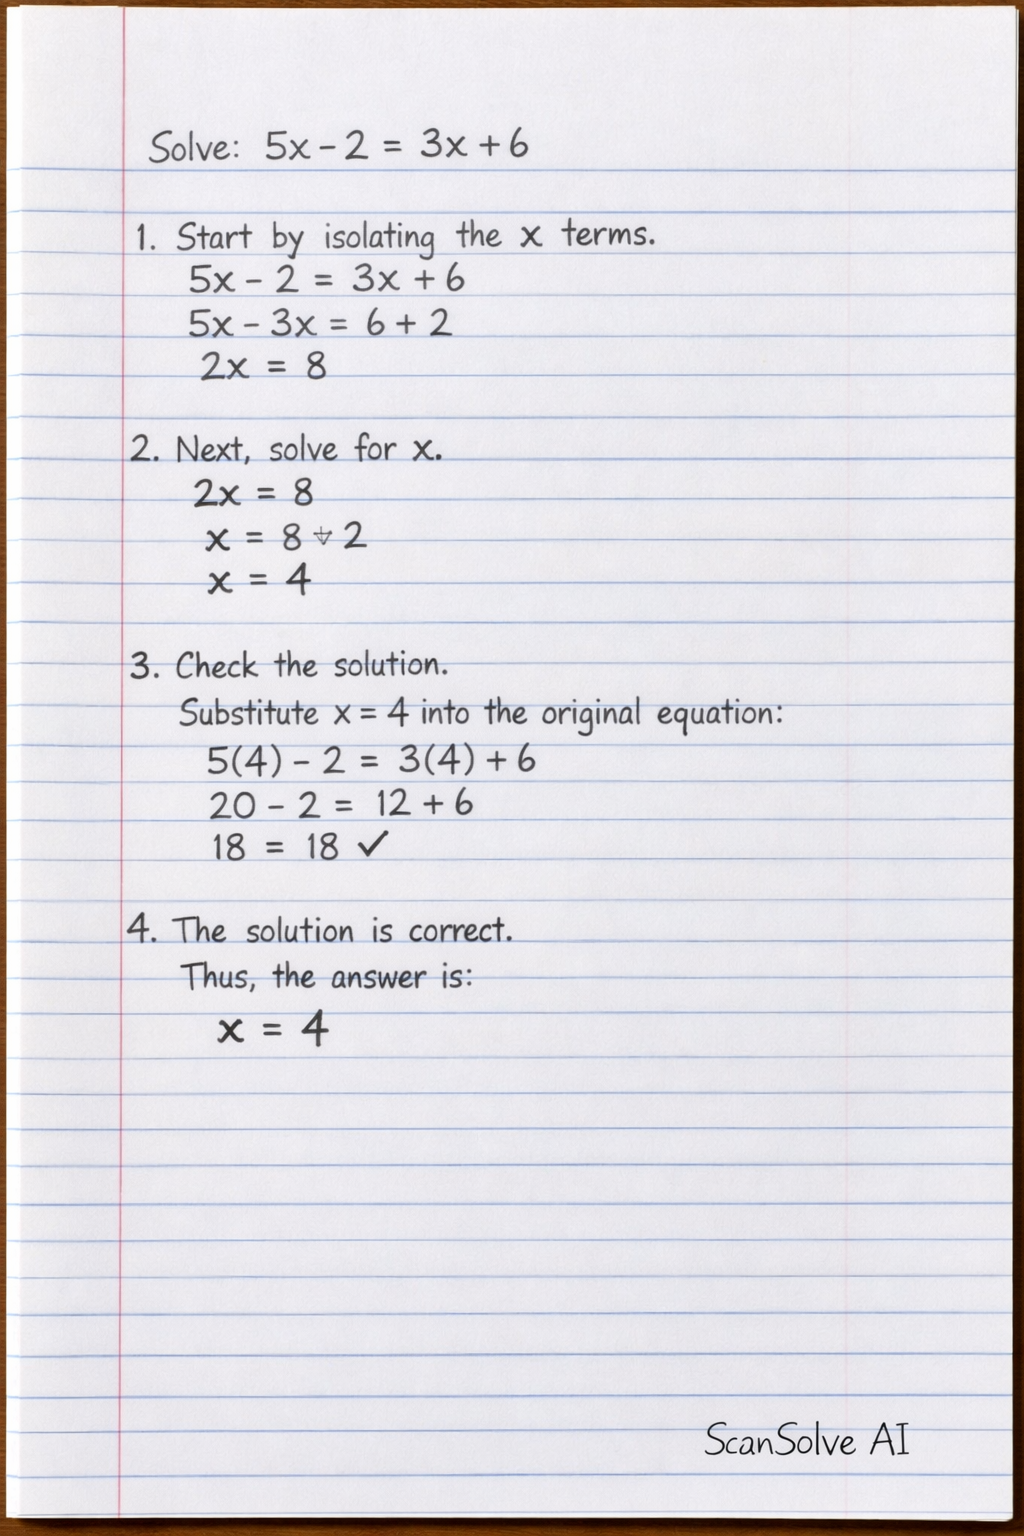 Solve: 5x - 2 = 3x + 6
1. Start by isolating the x terms.
5x - 2 = 3x + 6
5x - 3x = 6 + 2
2x = 8
2. Next, solve for x.
2x = 8
x = 8 ÷ 2
x = 4
3. Check the solution.
Substitute x = 4 into the original equation:
5(4) - 2 = 3(4) + 6
20 - 2 = 12 + 6
18 = 18 ✓
4. The solution is correct.
Thus, the answer is:
x = 4
ScanSolve AI